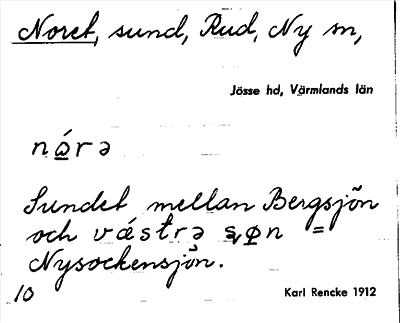 Noret, sund, Rud, Ny sn,
Jösse hd, Värmlands län
nǫ́rə
Sundet mellan Bergsjön
och vǽstrə søn =
Nysockensjön.
10
Karl Rencke 1912